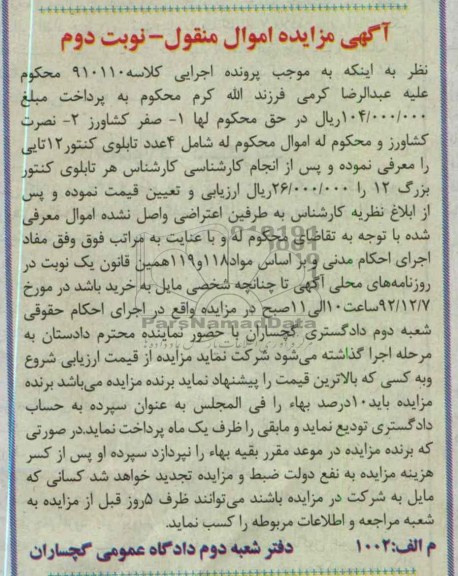 آگهی مزایده اموال منقول- نوبت دوم
نظر به اینکه به موجب پرونده اجرایی کلاسه ۹۱۰۱۱۰ محکوم
علیه عبدالرضا کرمی فرزند الله کرم محکوم به پرداخت مبلغ
۱۰۴/۰۰۰/۰۰۰ریال در حق محکوم لها ۱- صفر کشاورز ۲- نصرت
کشاورز و محکوم له اموال محکوم له شامل ۴عدد تابلوی کنتور۱۲تایی
را معرفی نموده و پس از انجام کارشناسی کارشناس هر تابلوی کنتور
بزرگ ۱۲ را ۲۶/۰۰۰/۰۰۰ریال ارزیابی و تعیین قیمت نموده و پس
از ابلاغ نظریه کارشناس به طرفین اعتراضی واصل نشده اموال معرفی
شده با توجه به تقاضای محکوم له و با عنایت به مراتب فوق وفق مفاد
اجرای احکام مدنی و بر اساس مواد۱۱۸و۱۱۹همین قانون یک نوبت در
روزنامه‌های محلی آگهی تا چنانچه شخصی مایل به خرید باشد در مورخ
۹۲/۱۲/۷ساعت۱۰الی۱۱صبح در مزایده واقع در اجرای احکام حقوقی
شعبه دوم دادگستری گچساران با حضور نماینده محترم دادستان به
مرحله اجرا گذاشته می‌شود شرکت نماید مزایده از قیمت ارزیابی شروع
وبه کسی که بالاترین قیمت را پیشنهاد نماید برنده مزایده می‌باشد برنده
مزایده باید۱۰درصد بهاء را فی المجلس به عنوان سپرده به حساب
دادگستری تودیع نماید و مابقی را ظرف یک ماه پرداخت نماید.در صورتی
که برنده مزایده در موعد مقرر بقیه بهاء را نپردازد سپرده او پس از کسر
هزینه مزایده به نفع دولت ضبط و مزایده تجدید خواهد شد کسانی که
مایل به شرکت در مزایده باشند می‌توانند ظرف ۵روز قبل از مزایده به
شعبه مراجعه و اطلاعات مربوطه را کسب نماید.
م الف:۱۰۰۲ دفتر شعبه دوم دادگاه عمومی گچساران
ParsNamadData